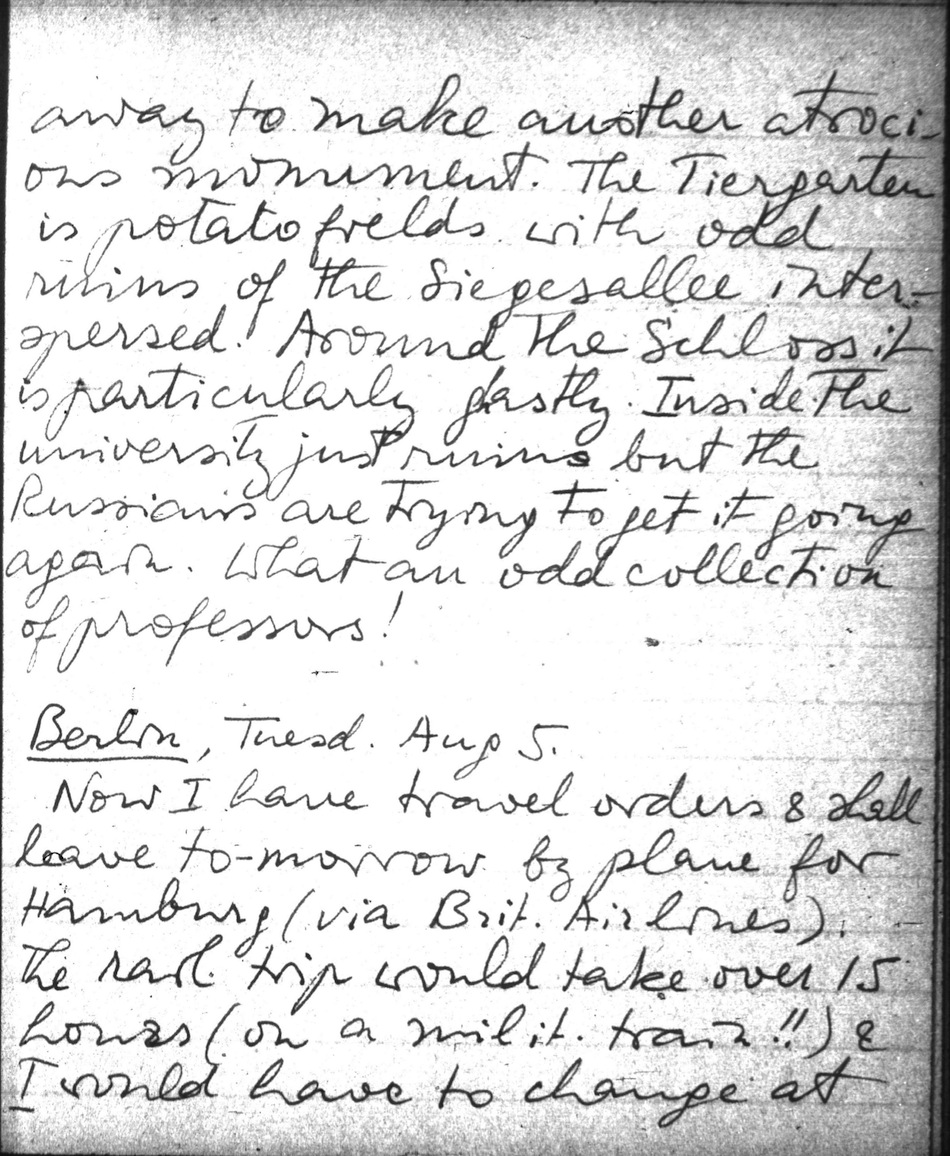 away to make another atroci-
ous monument. The Tiergarten
is potato fields with odd
ruins of the Siegesallee inter-
spersed. Around the Schloss it
is particularly gastly. Inside the
university just ruins but the
Russians are trying to get it going
again. What an odd collection
of professors!
Berlin, Tuesd. Aug 5.
Now I have travel orders & shall
leave to-morrow by plane for
Hamburg (via Brit. Airlines).
The rail trip would take over 15
hours (on a milit. train!!) &
I would have to change at